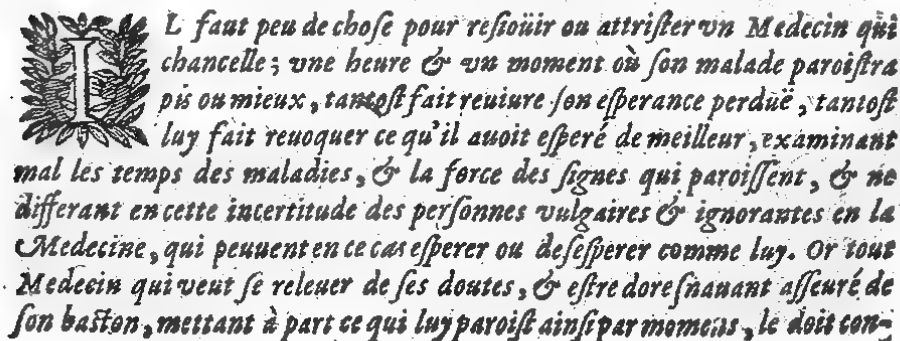 IL faut peu de chose pour resioüir ou attrister vn Medecin qui
chancelle ; vne heure & vn moment où son malade paroistra
pis ou mieux, tantost fait reuiure son esperance perduë, tantost
luy fait reuoquer ce qu'il auoit esperé de meilleur, examinant
mal les temps des maladies, & la force des signes qui paroissent, & ne
differant en cette incertitude des personnes vulgaires & ignorantes en la
Medecine, qui peuuent en ce cas esperer ou desesperer comme luy. Or tout
Medecin qui veut se releuer de ses doutes, & estre doresnauant asseuré de
son baston, mettant à part ce qui luy paroist ainsi par momens, le doit con-